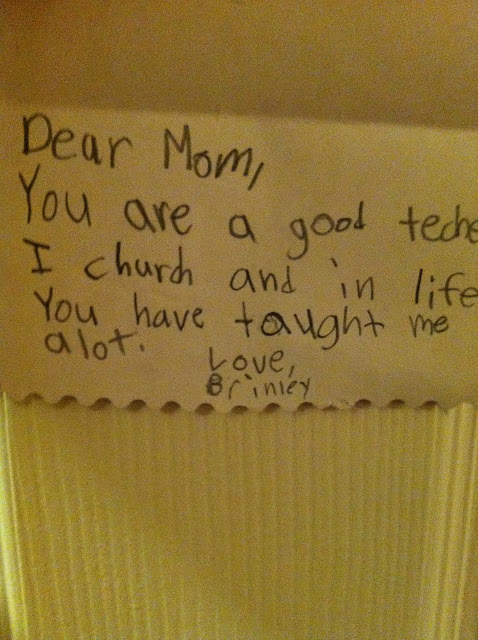 Dear Mom,
You are a good teche
I church and in life
You have taught me
alot.
Love,
Brinley